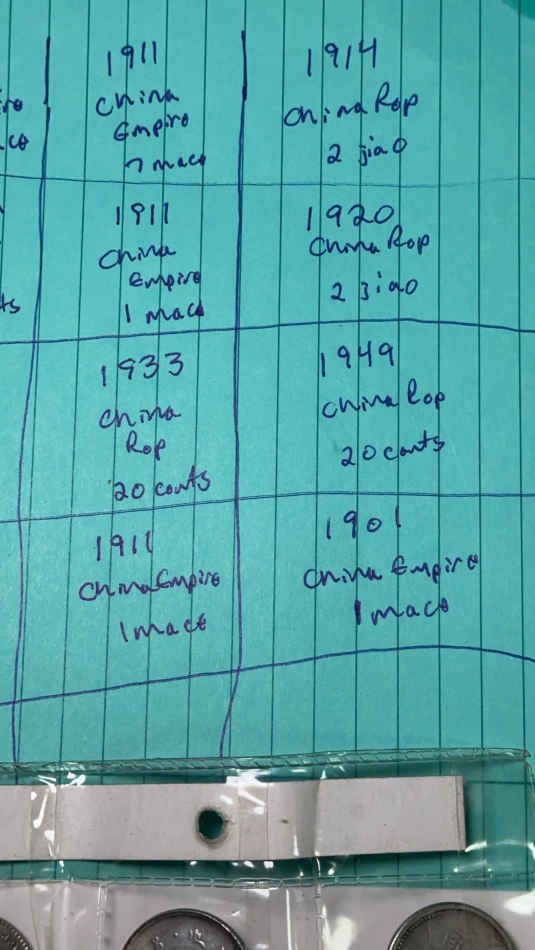 1911
China
Empire
7 mace
1914
China Rop
2 jiao
1911
China
Empire
1 mace
1920
China Rop
2 jiao
1933
China
Rop
20 cents
1949
China Rop
20 cents
1911
China Empire
1 mace
1901
China Empire
1 mace